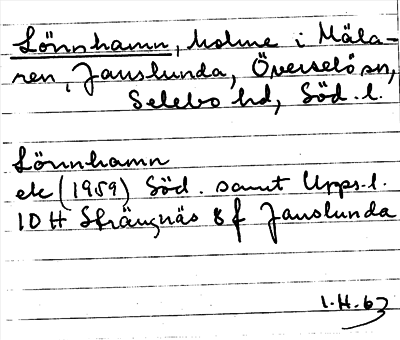 Lönnhamn, holme i Mäla-
ren, Janslunda, Överselö sn,
Selebo hd, Söd. l.
Lönnhamn
ek (1959) Söd. samt Upps. l.
10 H Strängnäs 8 f Janslunda
1.H.63